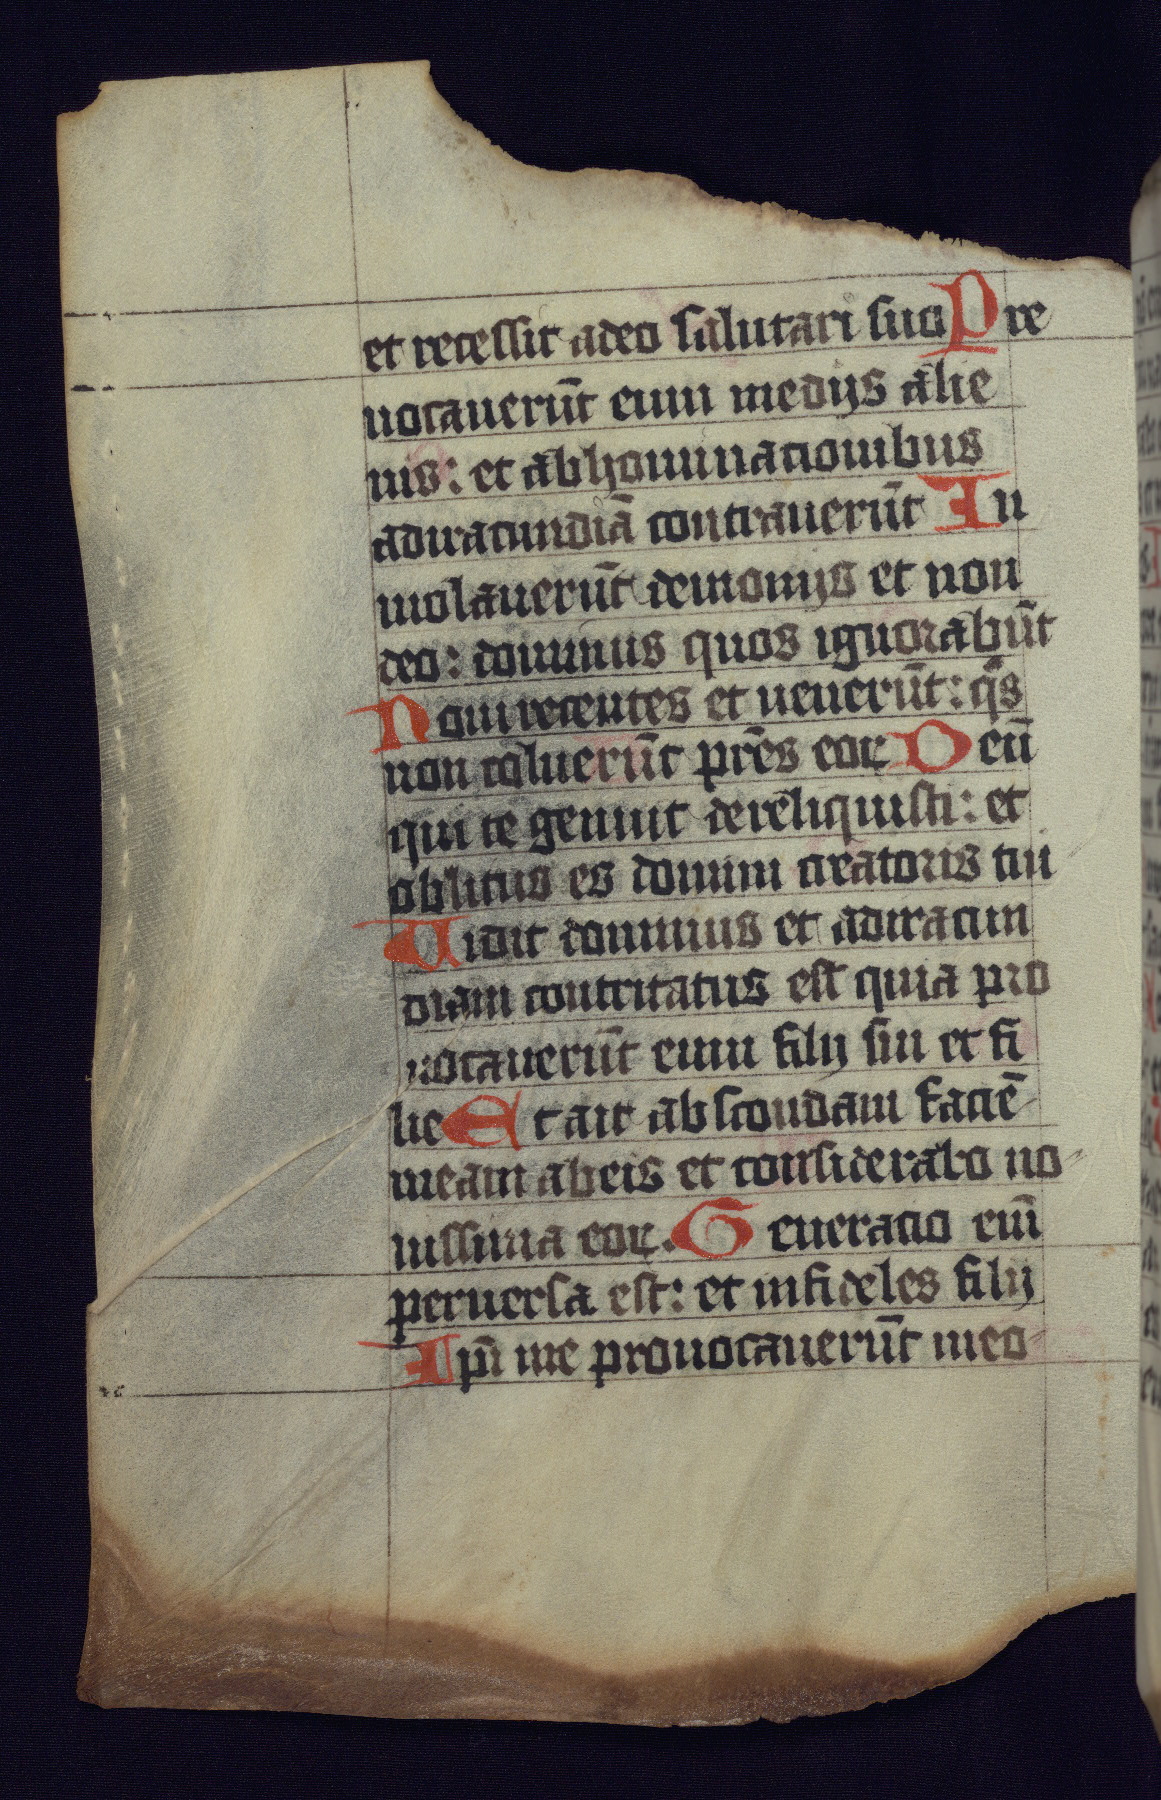 et recessit adeo salutari suo Pre
uocauerūt eum medijs alie
nis: et abhominacionibus
adiracundiā contrauerūt Im
molauerūt demonijs et non
deo: dominus quos ignorabūt
Noui recentes et uenerūt: q̄s
non coluerūt prēs eoꝝ Deū
qui te genuit dereliquisti: et
oblitus es domini creatoris tui
Uidit dominus et adiracun
diam contritatus est quia pro
uocauerūt eum filij sui et fi
lie Et ait abscondam faciē
meam abeis et considerabo no
uissima eoꝝ. Generacio eni̅
peruersa est: et infideles filij
Ip̄i me prouocauerūt in eo